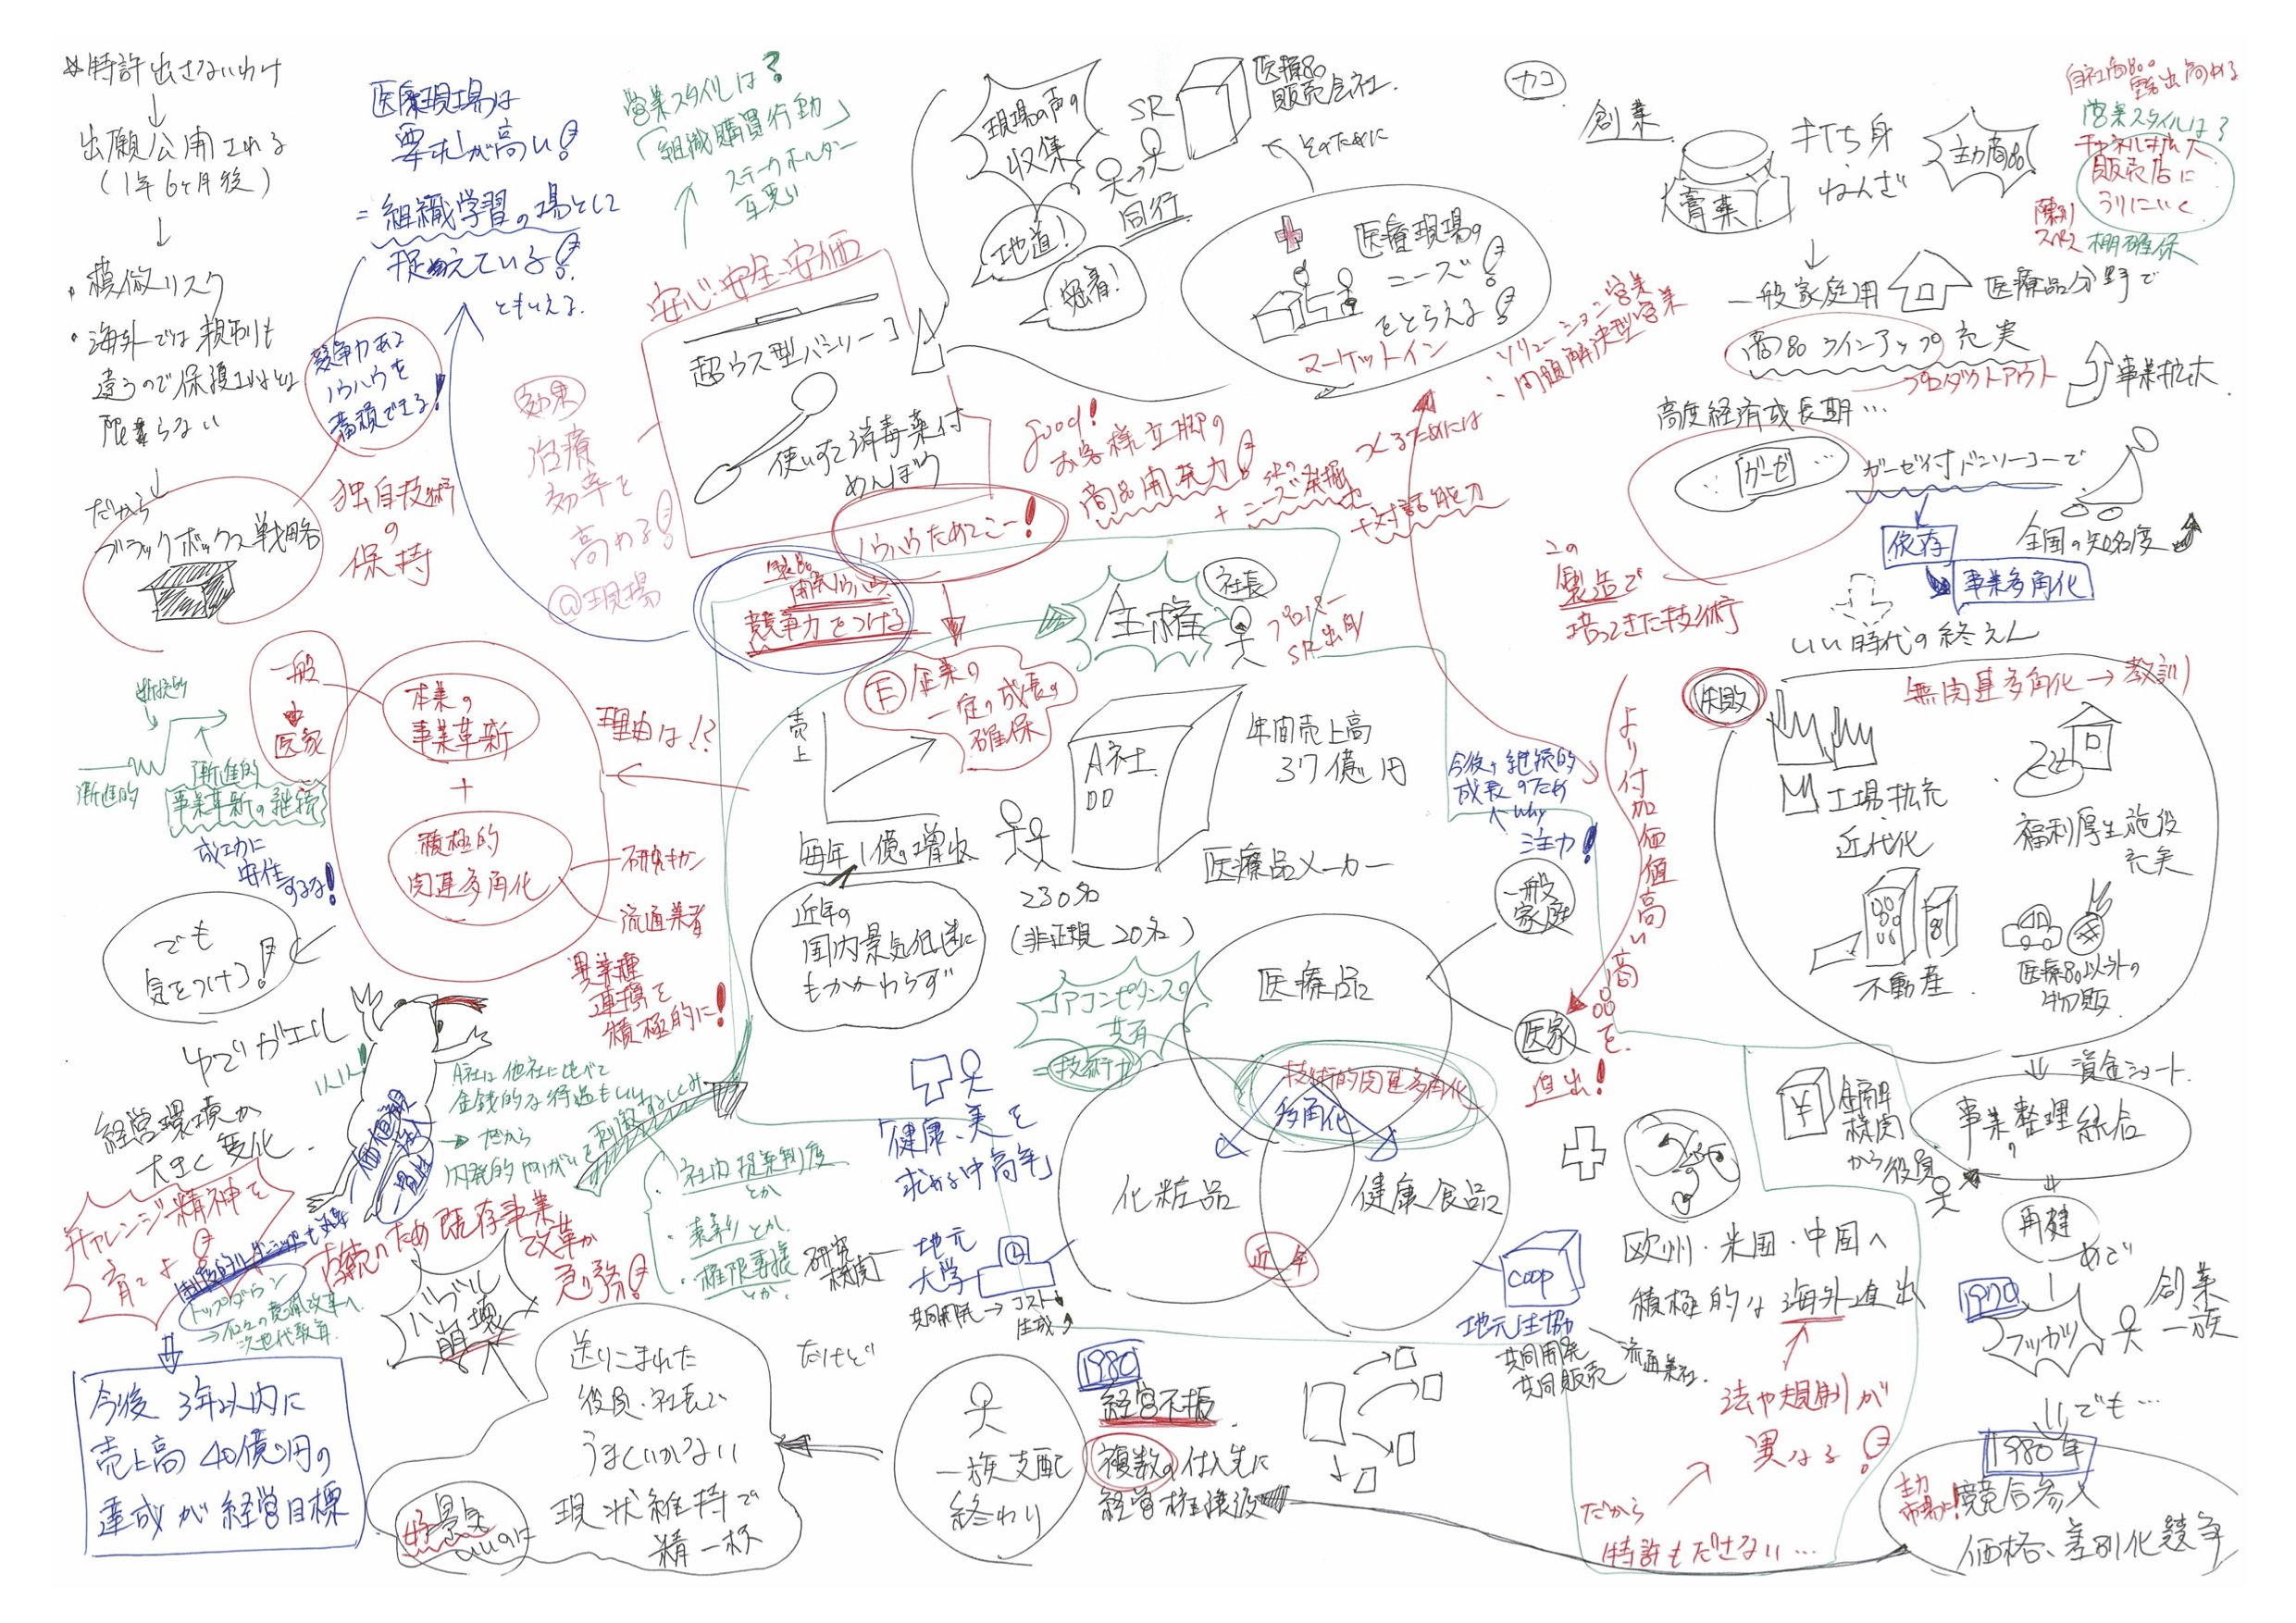 ☆特許出さないわけ
↓
出願公用される
(1年6ヶ月後)
↓
・模倣リスク
・海外では規制も
違うので保護されるとは
限らない
↓
だから
ブラックボックス戦略
独自技術
の
保持
競争力ある
ノウハウを
蓄積できる!
医療現場は
要求が高い!
=組織学習の場として
捉えている!
ともいえる.
営業スタイルは?
「組織購買行動」
ステークホルダー
安心・安全・安価
超ウス型バンソーコー
使いすて消毒薬付
めんぼう
効果
治療
効率を
高める!
@現場
ノウハウためてこー!
製品
開発ノウハウ
競争力をつける
現場の声の
収集
地道!
密着!
SR
同行
医療品
販売会社.
そのために
医療現場の
ニーズ!
をとらえる!
マーケットイン
ソリューション営業
:問題解決型営業
good!
お客様立脚の
商品開発力!
+ニーズ発掘力
+対話能力
つくるためには
カコ
創業
膏薬
打ち身
ねんざ
主力商品
自社商品の露出高める
営業スタイルは?
チャネル拡大
販売店に
うりにいく
陳列
スペース
棚確保
↓
一般家庭用
医療品分野で
商品ラインアップ充実
プロダクトアウト
事業拡大
高度経済成長期…
ガーゼ
ガーゼ付バンソーコーで
全国の知名度
依存
事業多角化
いい時代の終えん
この
製造で
培ってきた技術
失敗
無関連多角化→教訓
工場拡充
近代化
福利厚生施設
充実
不動産
医療品以外の
物販
資金ショート.
金融
機関
から役員
事業整理統合
再建
めど
1970
フッカツ
創業
一族
でも…
1980年
主力
市場に!
競合参入
価格、差別化競争
一般
医家
本業の
事業革新
+
積極的
関連多角化
理由は!?
研究キカン
流通業者
異業種
連携を
積極的に!
断続的
漸進的
漸進的
事業革新の継続
成功に
安住
するな!
でも
気をつけろ!
ゆでガエル
経営環境が
大きく変化.
チャレンジ精神を
育てよ!
トップダウン
次世代教育.
存続のため既存事業
改革が
急務!
価値観
一過性
A社は他社に比べて
金銭的な待遇もいい
→だから
内発的やりがいを刺激するしくみ
・社内提案制度
とか
・表彰とか
・権限委譲
とか.
今後3年以内に
売上高40億円の
達成が経営目標
全権
社長
プロパー
SR出身
売上
企業の
一定の成長の
確保
毎年1億増収
近年の
国内景気低迷に
もかかわらず
A社
230名
(非正規20名)
年間売上高
37億円
医療品メーカー
今後、継続的
成長のため
why
注力!
より付加価値高い商品を
追出!
一般
家庭
医家
医療品
化粧品
健康食品
近年
コアコンピタンスの
共有
=技術力
技術的関連多角化
多角化
「健康、美を
求める中高年」
研究
機関
地元
大学
共同開発→コスト↓
coop
地元生協
共同開発
共同販売
流通業社.
欧州・米国・中国へ
積極的な海外進出
法や規制が
異なる!
だから
特許もださない…
バブル
崩壊
送りこまれた
役員・社長で
うまくいかない
現状維持で
精一杯
好景気
いいのに
だけど
一族支配
終わり
1980
経営不振
複数の仕入先に
経営権譲渡